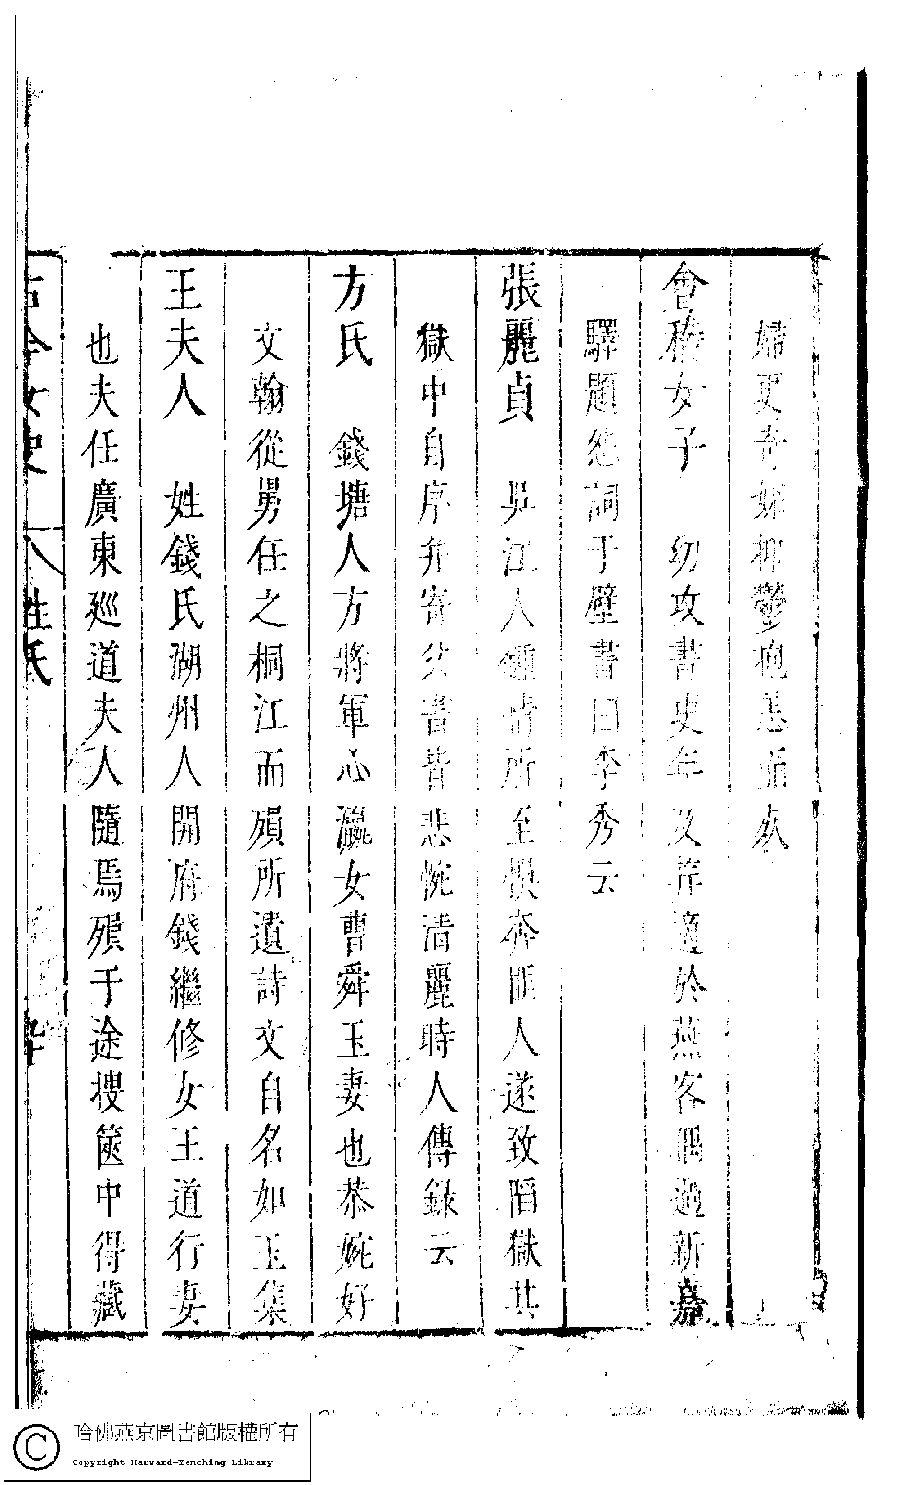 婦更奇妬抑鬱抱恚而歿
會稽女子　幼攻書史年及笄適於燕客偶過新嘉
驛題愁詞于壁書曰李秀云
張麗貞　吳江人鍾情所至誤奔匪人遂致陷獄其
獄中自序并寄父書皆悲惋清麗時人傳錄云
方氏　錢塘人方將軍心瀛女曹舜玉妻也恭婉好
文翰從舅任之桐江而殞所遺詩文自名如玉集
王夫人　姓錢氏湖州人開府錢繼修女王道行妻
也夫任廣東廵道夫人隨焉殞于途搜篋中得藏
古今女史　八　姓氏
哈佛燕京圖書館版權所有
Copyright Harvard-Yenching Library